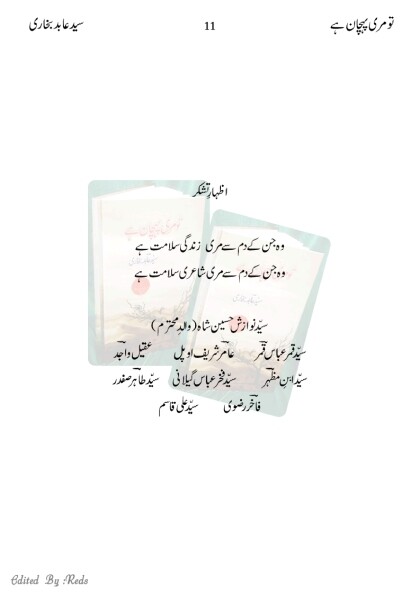 تو مری پہچان ہے 11 سید عابد بخاری
اظہارِ تشکر
وہ جن کے دم سے مری زندگی سلامت ہے
وہ جن کے دم سے مری شاعری سلامت ہے
سیّد نوازش حسین شاہ (والدِ محترم)
سیّد قمر عباس قمرؔ عامرؔ شریف اوپل عقیل واجدؔ
سیّد ابنِ مظہرؔ سیّد فخر عباس گیلانی سیّد طاہرؔ صفدر
فاخرؔ رضوی سیّد علی قاسم
تو مری پہچان ہے
Edited By Reds